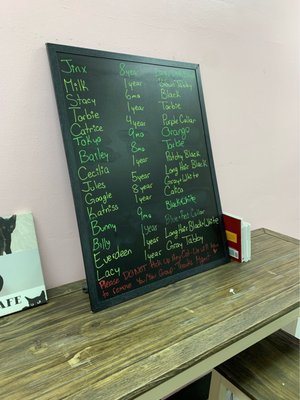 Jinx 8 year
Milk 1 year Brown Tabby
Stacy 6mo Black
Torbie 1 year Torbie
Catrice 4 year Purple Collar
Tokyo 9mo Orange
Bailey 8mo Torbie
Cecilia 1 year Patchy Black
Jules 5 year Long Hair Black
Google 8 year Gray+White
Katniss 1 year Calico
Bunny 9mo Black+White
Billy 1 year
Everdeen 1 year Long Hair Black+White
Lacy 1 year Gray Tabby
Please DO NOT Pick Up Any Cat
to remove You/Your Group. Thanks
CAFE